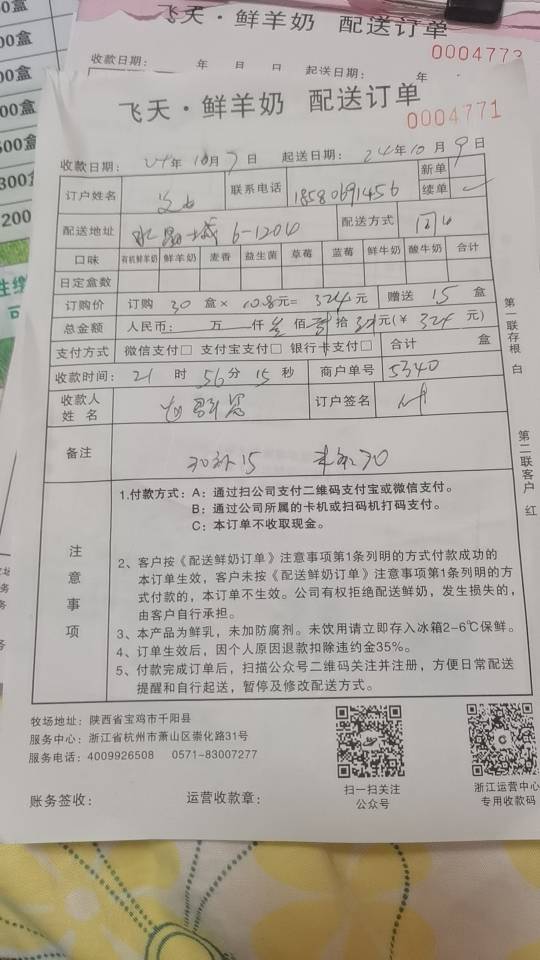 0盒
00盒
00盒
00盒
00盒
500盒
300
200
飞天·鲜羊奶 配送订单
0004773
收款日期: 年 月 日 起送日期: 年
飞天·鲜羊奶 配送订单
0004771
收款日期: 24年 10月 7日 起送日期: 24年 10月 9日
订户姓名 联系电话 18580691456 新单
续单 ✓
配送地址 水晶城 6-1204 配送方式
口味 有机鲜羊奶 鲜羊奶 麦香 益生菌 草莓 蓝莓 鲜牛奶 酸牛奶 合计
日定盒数
订购价 订购 30 盒× 10.8元= 324元 赠送 15 盒
总金额 人民币: 万 仟 叁佰 贰拾 元(¥ 324 元)
支付方式 微信支付□ 支付宝支付□ 银行卡支付□ 合计 盒
收款时间: 21时 56分 15秒 商户单号 5340
收款人姓名 订户签名
备注 30补15 30
注意事项
1.付款方式: A: 通过扫公司支付二维码支付宝或微信支付。
B: 通过公司所属的卡机或扫码机打码支付。
C: 本订单不收取现金。
2、客户按《配送鲜奶订单》注意事项第1条列明的方式付款成功的
本订单生效，客户未按《配送鲜奶订单》注意事项第1条列明的方
式付款的，本订单不生效。公司有权拒绝配送鲜奶，发生损失的，
由客户自行承担。
3、本产品为鲜乳，未加防腐剂。未饮用请立即存入冰箱2-6℃保鲜。
4、订单生效后，因个人原因退款扣除违约金35%。
5、付款完成订单后，扫描公众号二维码关注并注册，方便日常配送
提醒和自行起送，暂停及修改配送方式。
第一联存根 白
第二联客户 红
牧场地址: 陕西省宝鸡市千阳县
服务中心: 浙江省杭州市萧山区崇化路31号
服务电话: 4009926508 0571-83007277
账务签收: 运营收款章:
扫一扫关注
公众号
浙江运营中心
专用收款码